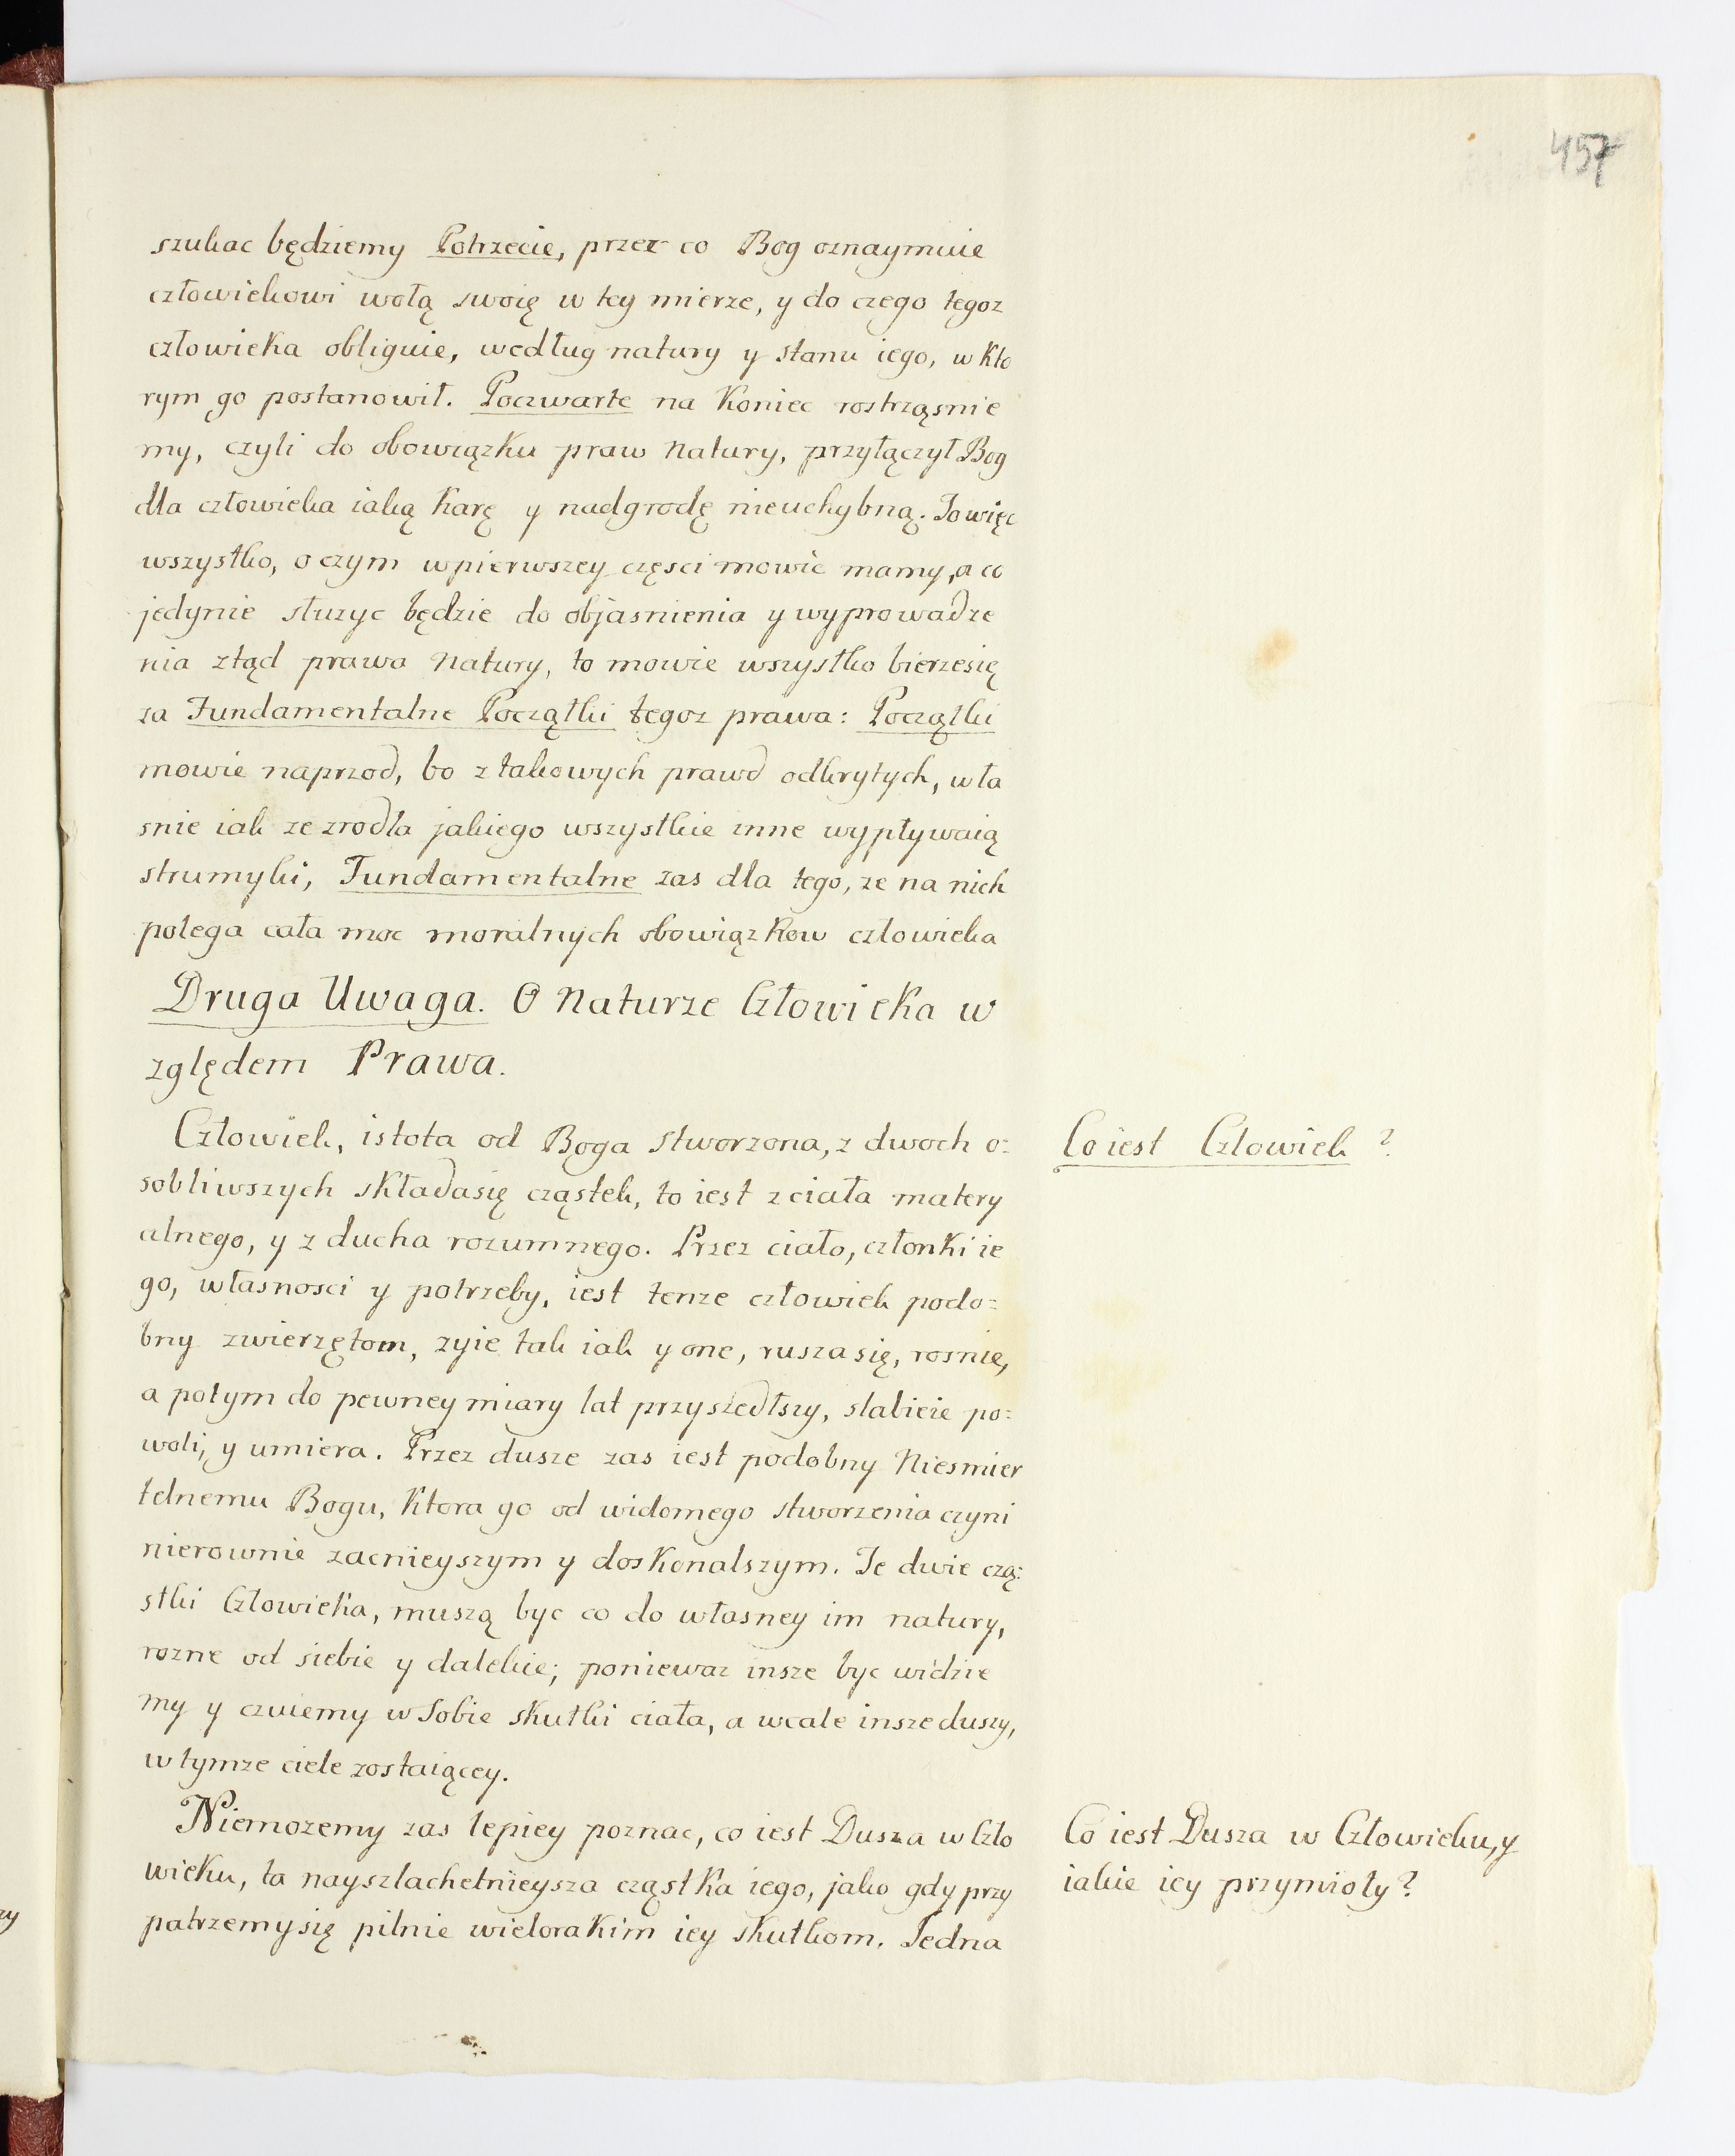 457
szukac będziemy Potrzecie, przez co Bog oznaymuie
człowiekowi wolą swoię w tey mierze, y do czego tegoz
człowieka obliguie, według natury y stanu iego, w kto
rym go postanowił. Poczwarte na Koniec rostrząsnie
my, czyli do obowiązku praw Natury, przyłączył Bog
dla człowieka iaką karę y nadgrodę nieuchybną. To więc
wszystko, o czym w pierwszey częsci mowic mamy, a co
jedynie słuzyc będzie do objasnienia y wyprowadze
nia ztąd prawa Natury, to mowie wszystko bierzesię
za Fundamentalne Początki tegoz prawa: Początki
mowie naprzod, bo z takowych prawd odkrytych, wła
snie iak ze zrodła jakiego wszystkie inne wypływaią
strumyki, Fundamentalne zas dla tego, ze na nich
polega cała moc moralnych obowiązkow człowieka
Druga Uwaga. O Naturze Człowieka w
zględem Prawa.
Człowiek, istota od Boga stworzona, z dwoch o=
sobliwszych składasię cząstek, to iest z ciała matery
alnego, y z ducha rozumnego. Przez ciało, członki ie
go, własnosci y potrzeby, iest tenze człowiek podo=
bny zwierzętom, zyie tak iak y one, rusza się, rosnie,
a potym do pewney miary lat przyszedłszy, słabieie po=
woli, y umiera. Przez dusze zas iest podobny Niesmier
telnemu Bogu, Ktora go od widomego stworzenia czyni
nierownie zacnieyszym y doskonalszym. Te dwie czą=
stki Człowieka, muszą byc co do własney im natury,
rozne od siebie y dalekie; poniewaz insze byc widzie
my y czuiemy w Sobie skutki ciała, a wcale insze duszy,
w tymze ciele zostaiącey.
Niemozemy zas lepiey poznac, co iest Dusza w Czło
wieku, ta nayszlachetnieysza cząstka iego, jako gdy przy
patrzemysię pilnie wielorakim iey skutkom. Jedna
Co iest Człowiek?
Co iest Dusza w Człowieku, y
iakie iey przymioty?